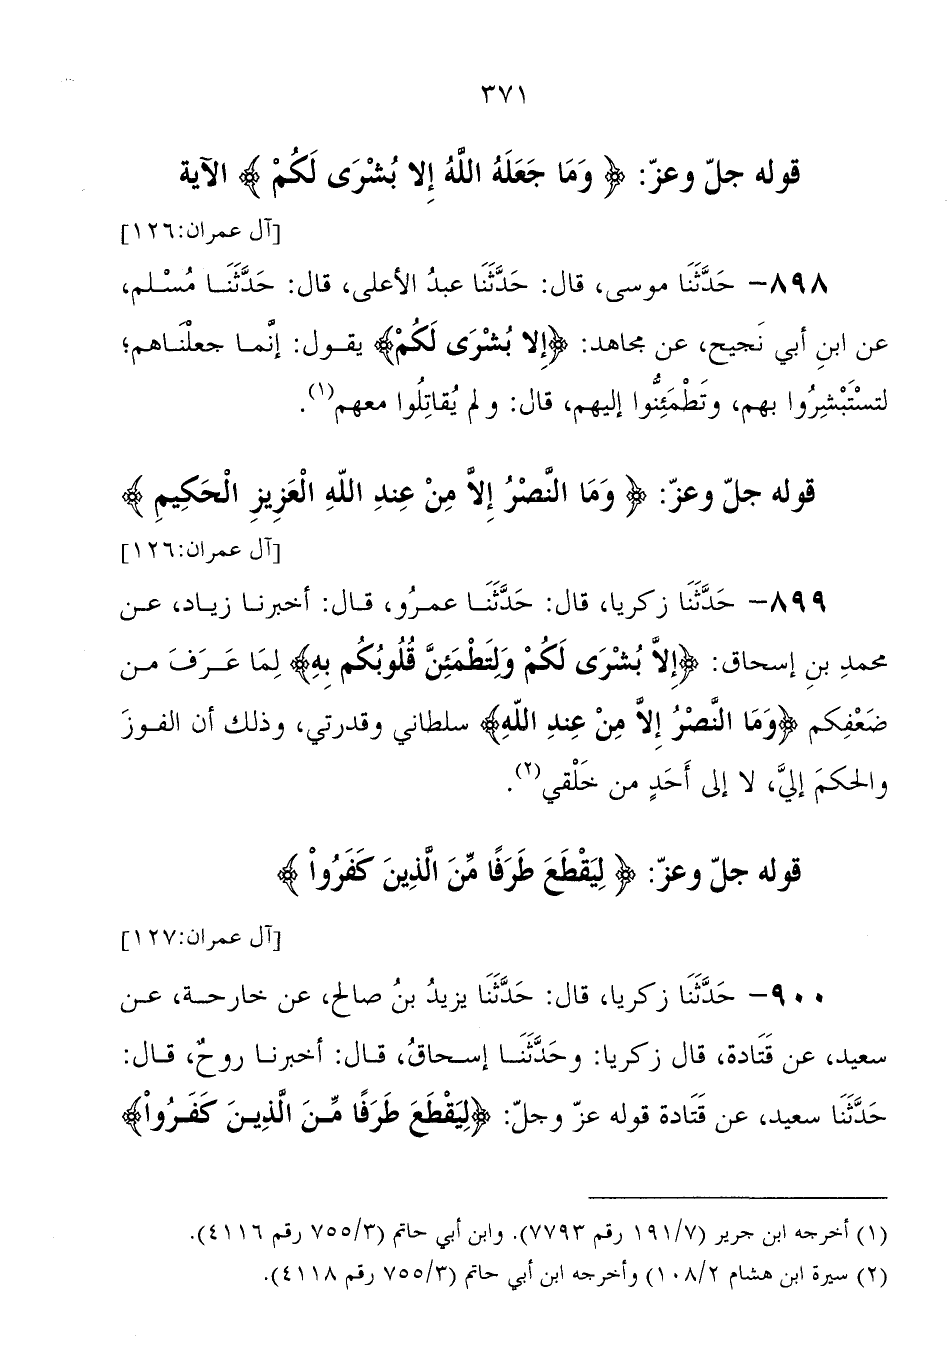 ٣٧١
قوله جلّ وعزّ: ﴿ وَمَا جَعَلَهُ اللَّهُ إِلا بُشْرَى لَكُمْ ﴾ الآية
[آل عمران:١٢٦]
٨٩٨- حَدَّثَنَا موسى، قال: حَدَّثَنَا عبدُ الأعلى، قال: حَدَّثَنَا مُسْلم،
عن ابنِ أبي نَجيح، عن مجاهد: ﴿إِلا بُشْرَى لَكُمْ﴾ يقول: إنَّما جعلْنَاهم؛
لتسْتَبْشِرُوا بهم، وتَطْمَئِنُّوا إليهم، قال: ولم يُقاتِلُوا معهم(١).
قوله جلّ وعزّ: ﴿ وَمَا النَّصْرُ إِلاَّ مِنْ عِندِ اللّهِ الْعَزِيزِ الْحَكِيمِ ﴾
[آل عمران:١٢٦]
٨٩٩- حَدَّثَنَا زكريا، قال: حَدَّثَنَا عمرُو، قال: أخبرنا زياد، عن
محمدِ بنِ إسحاق: ﴿إِلاَّ بُشْرَى لَكُمْ وَلِتَطْمَئِنَّ قُلُوبُكُم بِهِ﴾ لِمَا عَرَفَ من
ضَعْفِكم ﴿وَمَا النَّصْرُ إِلاَّ مِنْ عِندِ اللّهِ﴾ سلطاني وقدرتي، وذلك أن الفوزَ
والحكمَ إليَّ، لا إلى أَحَدٍ من خَلْقي(٢).
قوله جلّ وعزّ: ﴿ لِيَقْطَعَ طَرَفًا مِّنَ الَّذِينَ كَفَرُواْ ﴾
[آل عمران:١٢٧]
٩٠٠- حَدَّثَنَا زكريا، قال: حَدَّثَنَا يزيدُ بنُ صالح، عن خارجة، عن
سعيد، عن قَتَادة، قال زكريا: وحَدَّثَنَا إسحاقُ، قال: أخبرنا روحٌ، قال:
حَدَّثَنَا سعيد، عن قَتَادة قوله عزّ وجلّ: ﴿لِيَقْطَعَ طَرَفًا مِّنَ الَّذِينَ كَفَرُواْ﴾
(١) أخرجه ابن جرير (١٩١/٧ رقم ٧٧٩٣). وابن أبي حاتم (٧٥٥/٣ رقم ٤١١٦).
(٢) سيرة ابن هشام ١٠٨/٢) وأخرجه ابن أبي حاتم (٧٥٥/٣ رقم ٤١١٨).